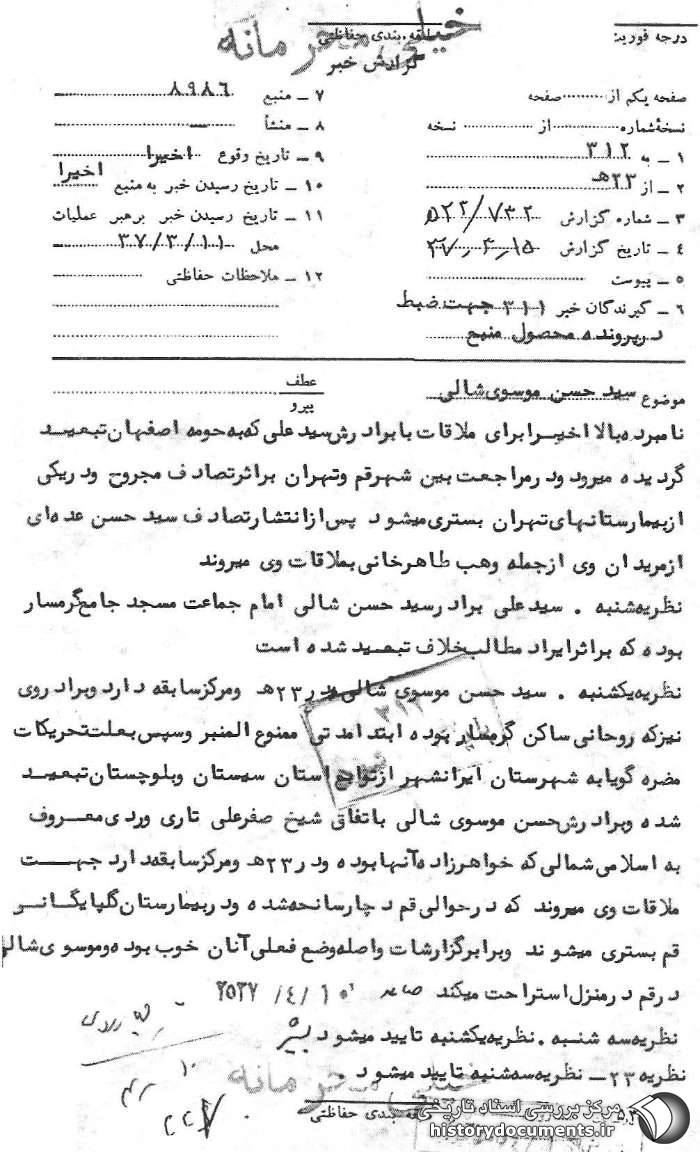 خیلی محرمانه
درجه فوریت
طبقه بندی حفاظتی
گزارش خبر
صفحه یکم از ........ صفحه
نسخهٔ شماره ........ از ........ نسخه
۱ ـ به ۳۱۲
۲ ـ از ۲۳هـ
۳ ـ شماره گزارش ۵۲۲/۷۳۲
۴ ـ تاریخ گزارش ۳۷٫۴٫۱۵
۵ ـ پیوست
۶ ـ گیرندگان خبر ۳۱۱ جهت ضبط
درپرونده محصول منبع
۷ ـ منبع ۸۹۸۶
۸ ـ منشأ ـ
۹ ـ تاریخ وقوع اخیرا
۱۰ ـ تاریخ رسیدن خبر به منبع اخیرا
۱۱ ـ تاریخ رسیدن خبر برهبر عملیات
محل ۳۷/۳/۱۱
۱۲ ـ ملاحظات حفاظتی
موضوع سید حسن موسوی شالی
عطف
پیرو
نامبرده بالا اخیرا برای ملاقات با برادرش سید علی که به حومه اصفهان تبعید
گردیده میرود و درمراجعت بین شهرقم وتهران براثرتصادف مجروح ودریکی
ازبیمارستانهای تهران بستری میشود پس ازانتشارتصادف سید حسن عده ای
ازمریدان وی ازجمله وهب طاهرخانی بملاقات وی میروند
نظریه شنبه . سید علی برادرسید حسن شالی امام جماعت مسجد جامع گرمسار
بوده که براثرایراد مطالب خلاف تبعید شده است
نظریه یکشنبه . سید حسن موسوی شالی در۲۳هـ ومرکزسابقه دارد وبرادروی
نیزکه روحانی ساکن گرمسار بوده ابتدا مدتی ممنوع المنبر وسپس بعلت تحریکات
مضره گویا به شهرستان ایرانشهر ازتوابع استان سیستان وبلوچستان تبعید
شده وبرادرش حسن موسوی شالی باتفاق شیخ صفرعلی تاری وردی معروف
به اسلامی شمالی که خواهرزاده آنها بوده ودر۲۳هـ ومرکزسابقه دارد جهت
ملاقات وی میروند که درحوالی قم دچارسانحه شده ودربیمارستان گلپایگانی
قم بستری میشوند وبرابرگزارشات واصله وضع فعلی آنان خوب بوده وموسوی شالی
درقم درمنزل استراحت میکند ۲۵۳۷/۴/۱۰
نظریه سه شنبه . نظریه یکشنبه تایید میشود
نظریه ۲۳ ـ نظریه سه شنبه تایید میشود .
خیلی محرمانه
طبقه بندی حفاظتی
مرکز بررسی اسناد تاریخی
historydocuments.ir